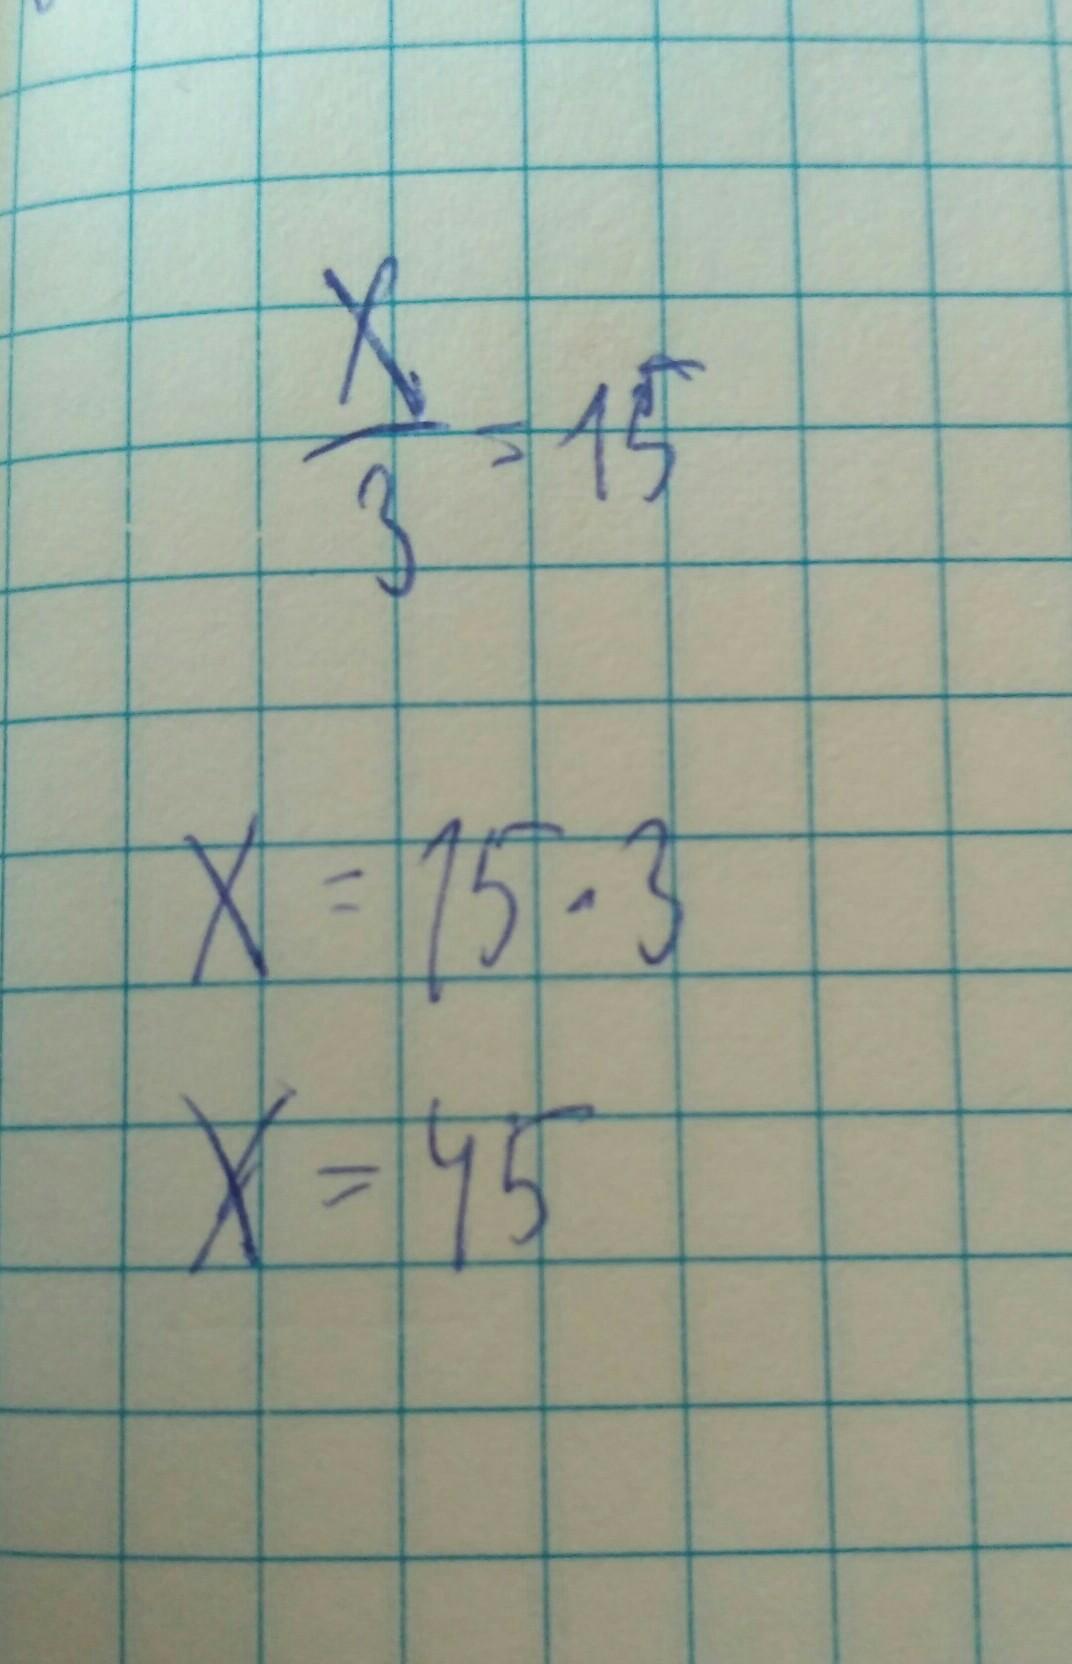 x/3 = 15
x = 15 · 3
x = 45